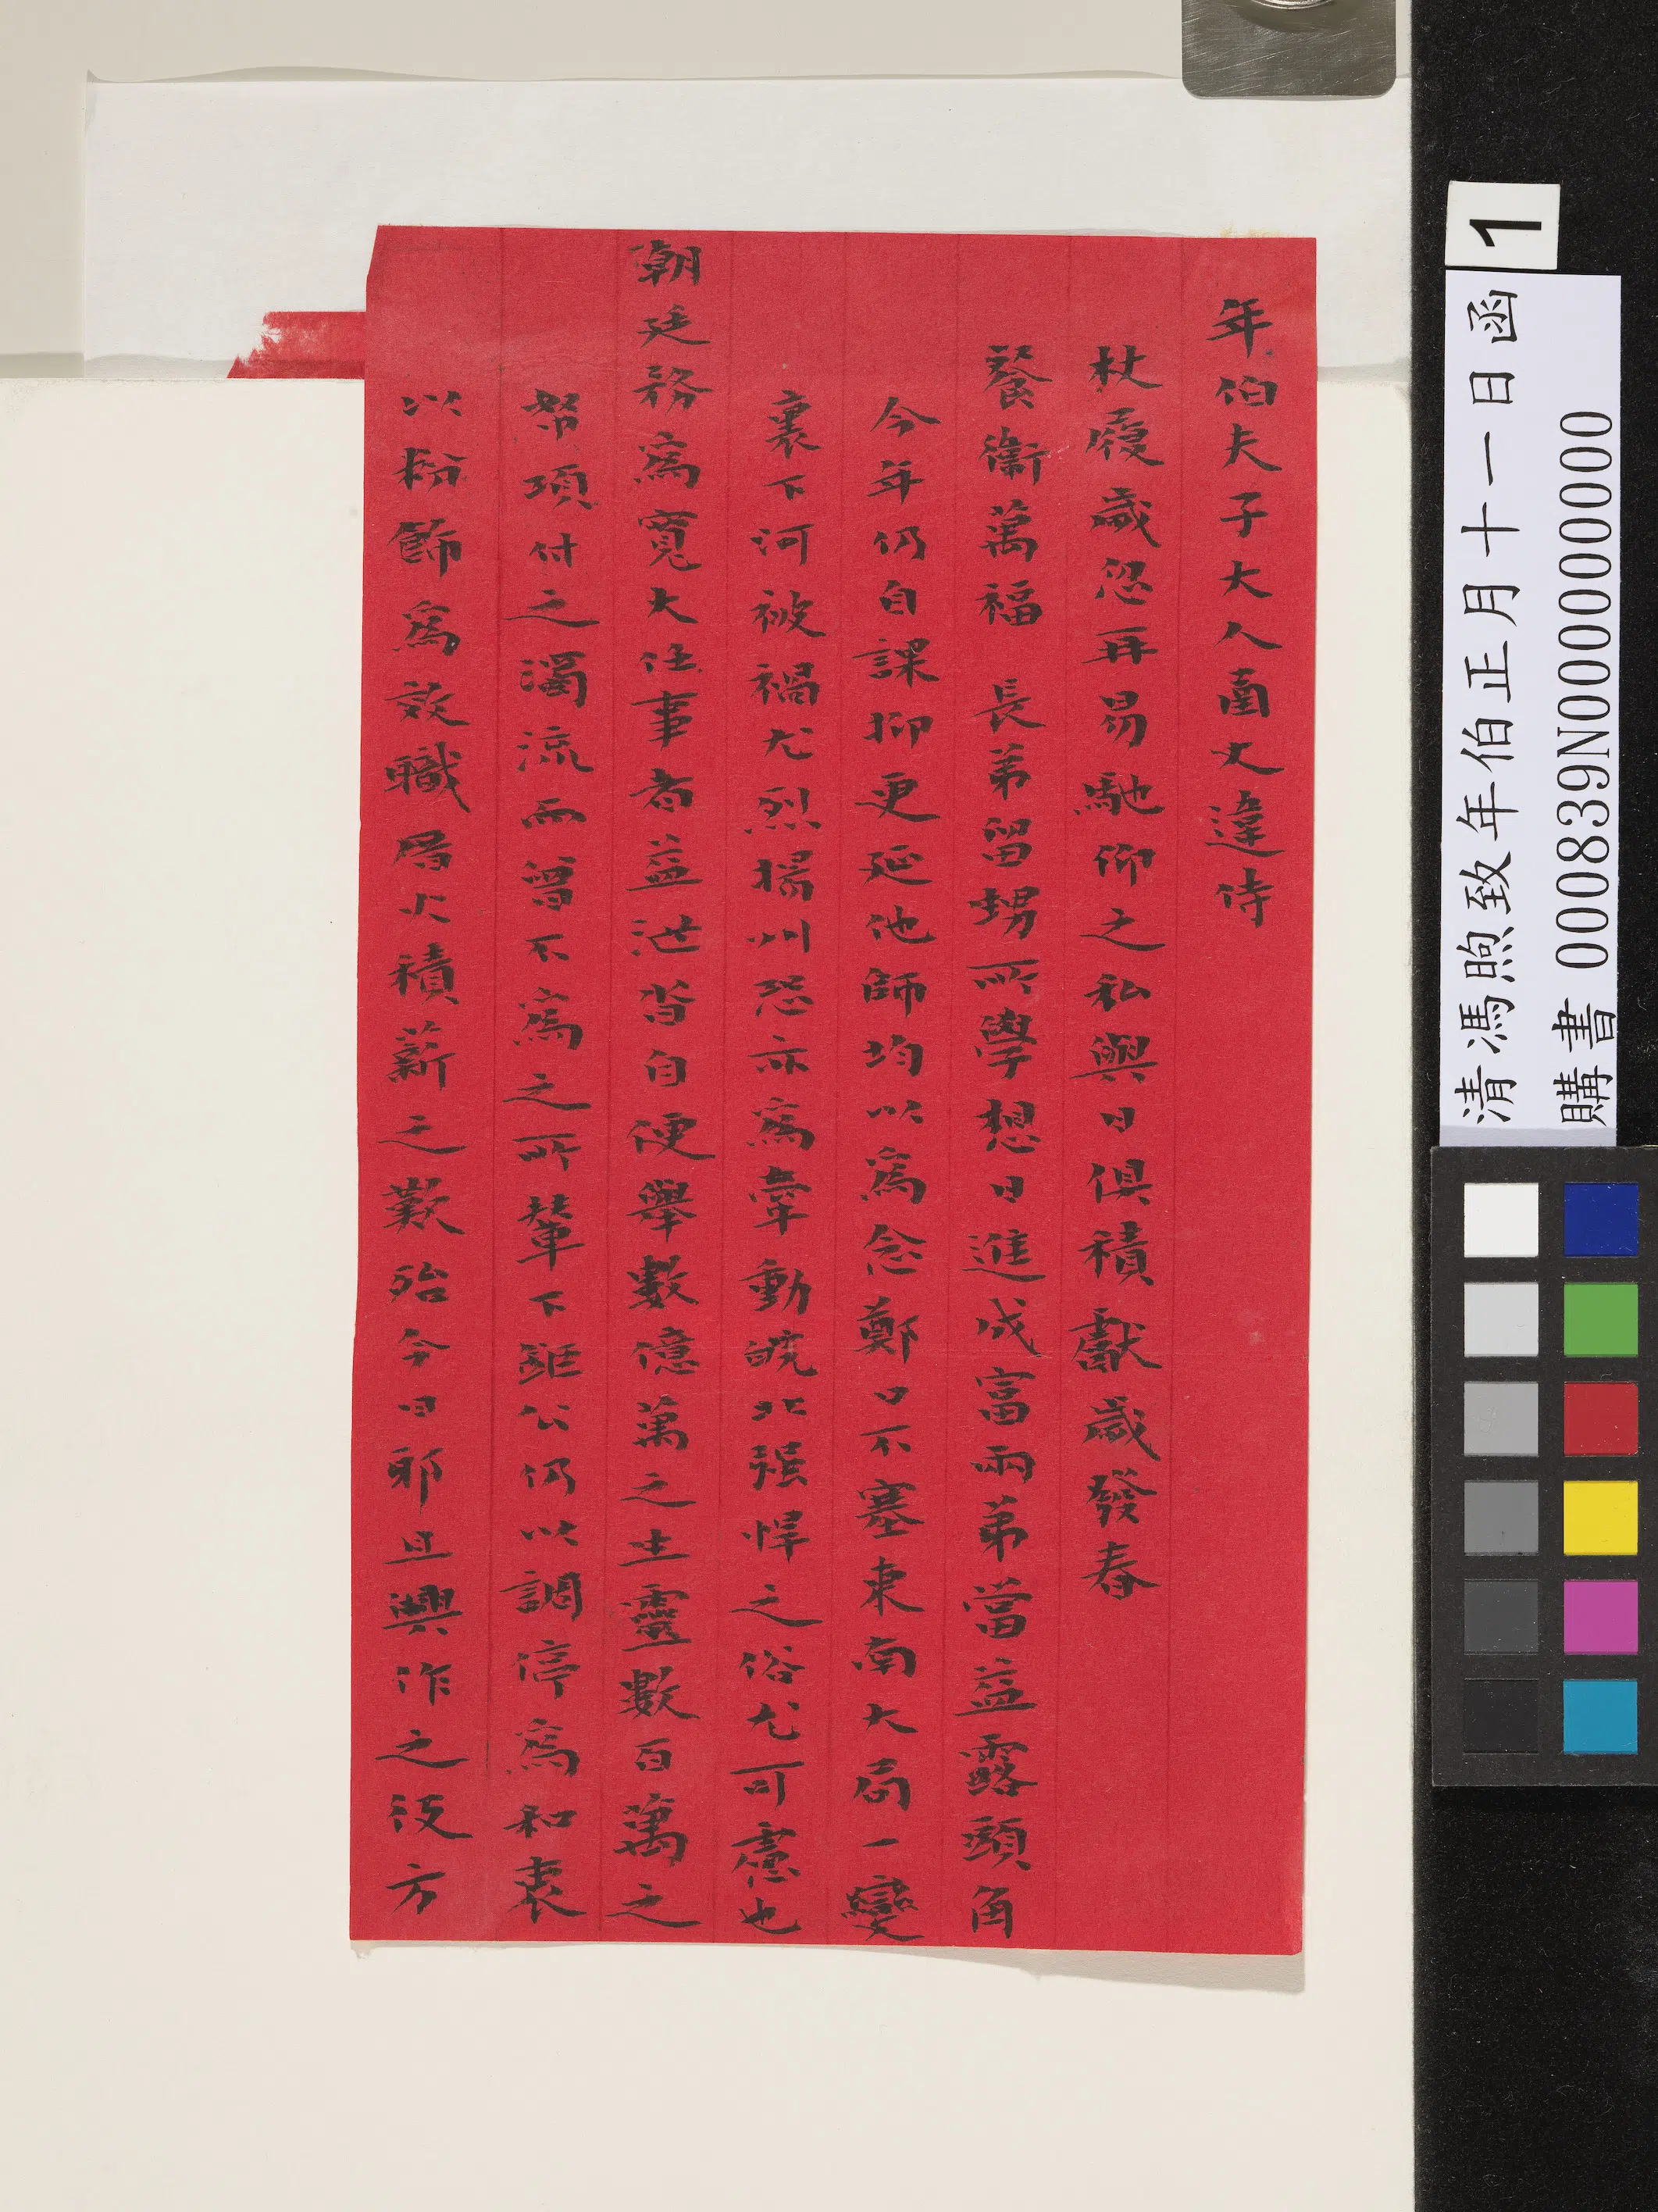 年伯夫子大人函丈違侍
杖履歲忽再易馳仰之私與日俱積獻歲發春
餐衛萬福 長弟留甥所學想日進成富兩弟當益露頭角
今年仍自課抑更延他師均以為念鄭口不塞東南大局一變
裏下河被禍尤烈揚州恐亦為牽動皖北强悍之俗尤可慮也
朝廷務為寬大任事者益泄沓自便舉數億萬之生靈數百萬之
帑項付之濁流而曾不為之所輦下鉅公仍以調停為和衷
以粉飾為效職厝火積薪之歎殆今日邪且興作之役方
1
清馮煦致年伯正月十一日函
購書 000839N000000000